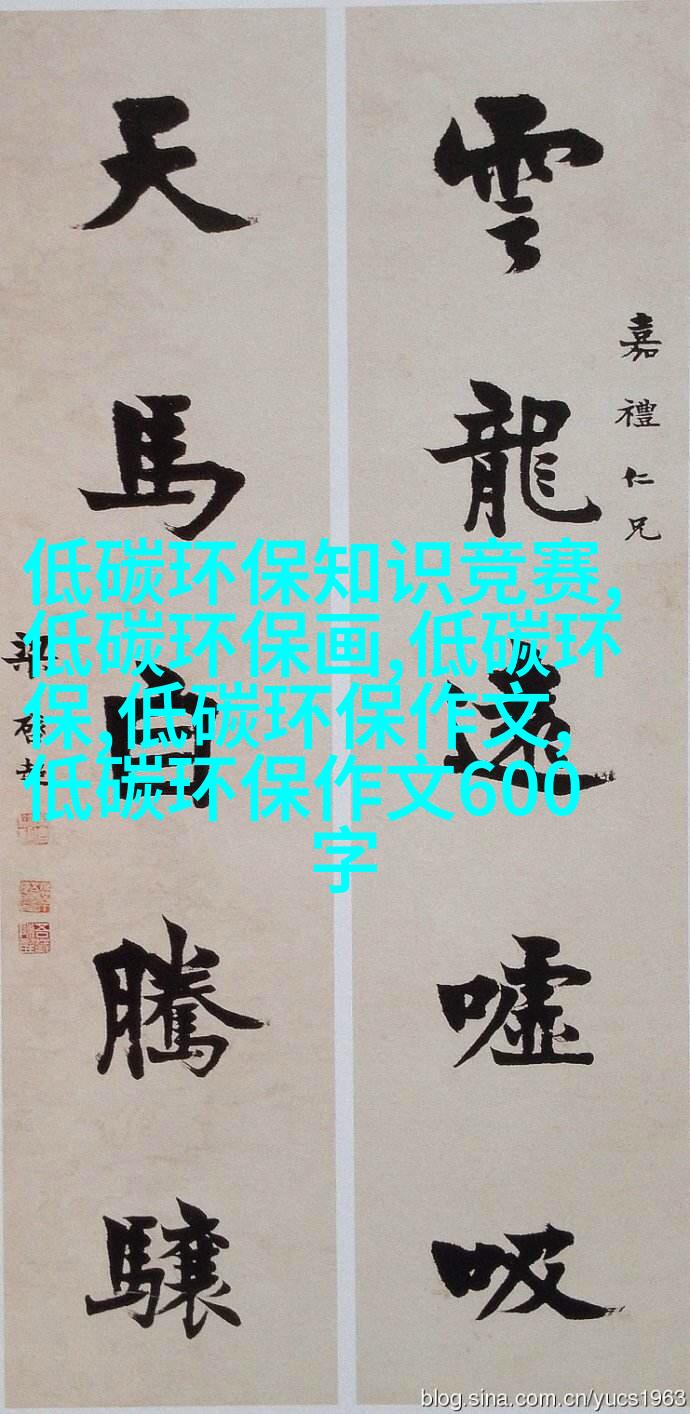 嘉禮仁兄
雲龍遠噓吸
天馬自騰驤
梁啓超
低碳环保知识竞赛,
低碳环保画,低碳环
保,低碳环保作文,
低碳环保作文600
字
blog.sina.com.cn/yucs1963